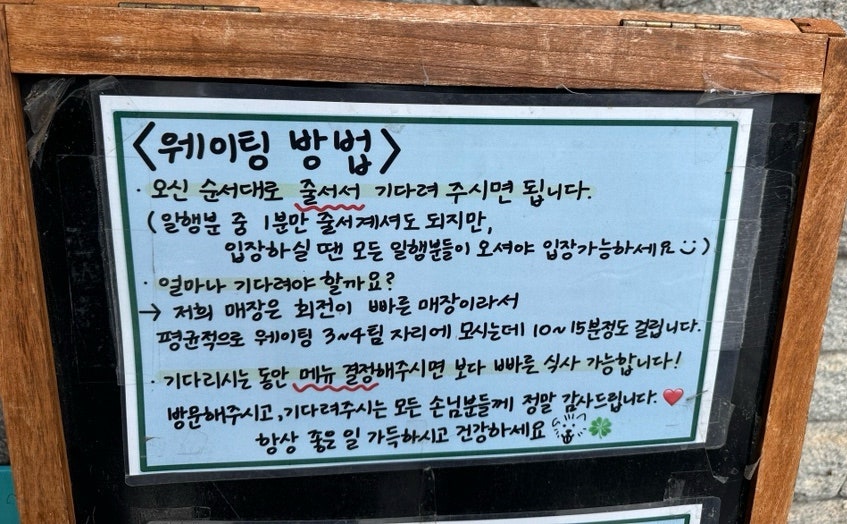 <웨이팅 방법>
· 오신 순서대로 줄서서 기다려 주시면 됩니다.
(일행분 중 1분만 줄서계셔도 되지만,
입장하실 땐 모든 일행분들이 오셔야 입장가능하세요 :))
· 얼마나 기다려야 할까요?
→ 저희 매장은 회전이 빠른 매장이라서
평균적으로 웨이팅 3~4팀 자리에 모시는데 10~15분정도 걸립니다.
· 기다리시는 동안 메뉴 결정해주시면 보다 빠른 식사 가능합니다!
방문해주시고, 기다려주시는 모든 손님분들께 정말 감사드립니다. ❤️
항상 좋은 일 가득하시고 건강하세요 🍀